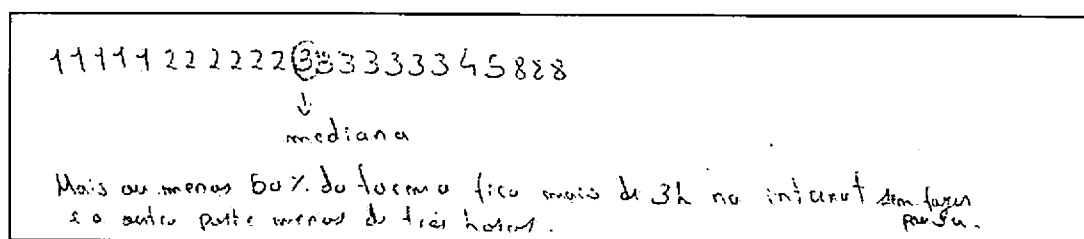 1 1 1 1 1 2 2 2 2 2 2 3 3 3 3 3 3 3 4 5 8 8 8
mediana
Mais ou menos 50% da turma fica mais de 3h na internet sem fazer
e a outra parte menos de três horas. pausa.